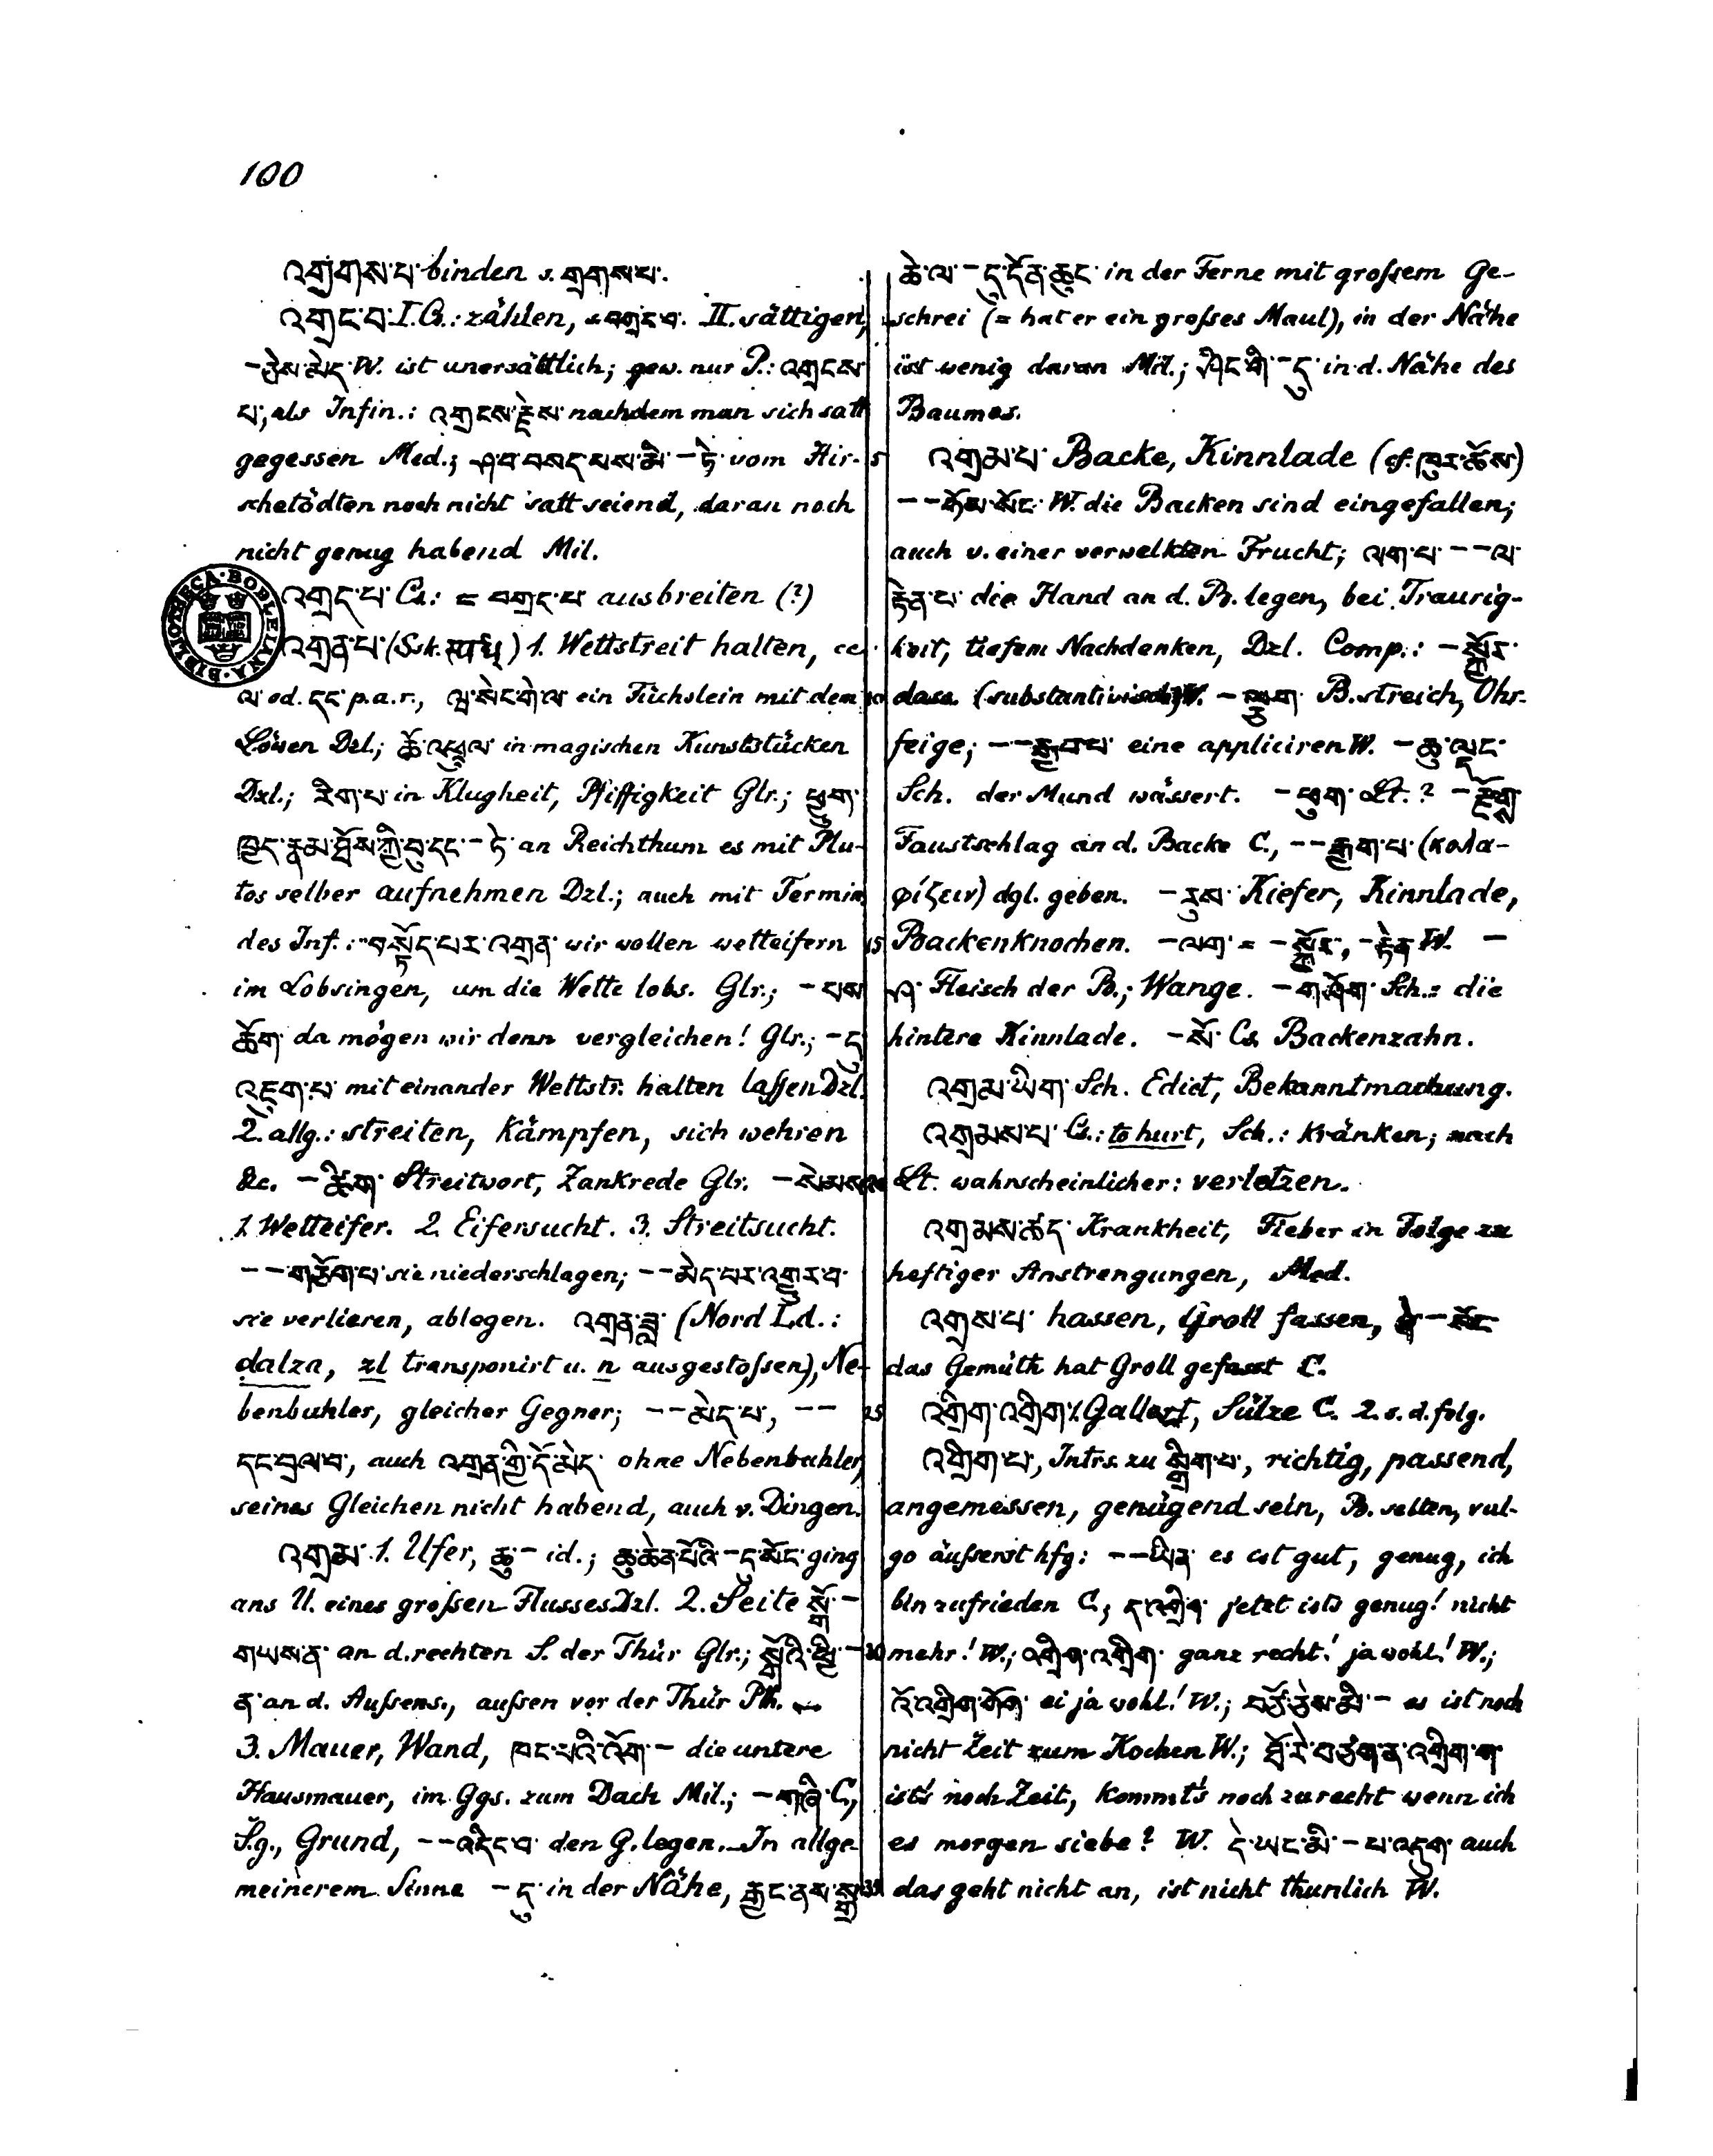 100
འགྲགས་པ་ binden s. གྲགས་པ་.
འགྲང་བ་ I. Cs.: zählen, = བགྲང་བ་. II. sättigen,
–ཤེས་མེད་ W. ist unersättlich; gew. nur P.: འགྲངས་
པ་, als Infin.: འགྲངས་རྗེས་ nachdem man sich satt
gegessen Med.; ཤ་བ་བསད་པས་མི་ – ཏེ་ vom Hir-
schetödten noch nicht satt seiend, daran noch
nicht genug habend Mil.
འགྲད་པ་ Cs.: = བགྲད་པ་ ausbreiten (?)
འགྲན་པ་ (Ssk. स्पर्ध) 1. Wettstreit halten, cc.
ལ་ od. དང་ p.a.r., ཝ་སེང་གེ་ལ་ ein Füchslein mit dem
Löwen Dzl.; ཆོ་འཕྲུལ་ in magischen Kunststücken
Dzl.; རིག་པ་ in Klugheit, Pfiffigkeit Glr.; ཕྱུག་
ཁྱད་རྣམ་ཐོས་ཀྱི་བུ་དང་ – ཏེ་ an Reichthum es mit Plu-
tos selber aufnehmen Dzl.; auch mit Termin.
des Inf.: བསྟོད་པར་འགྲན་ wir wollen wetteifern
im Lobsingen, um die Wette lobs. Glr.; – པས་
ཆོག་ da mögen wir denn vergleichen! Glr.; – དུ་
འཇུག་པ་ mit einander Wettstr. halten lassen Dzl.
2. allg.: streiten, kämpfen, sich wehren
&c. – ཚིག་ Streitwort, Zankrede Glr. – སེམས་
1. Wetteifer. 2. Eifersucht. 3. Streitsucht.
– – གཅོག་པ་ sie niederschlagen; – – མེད་པར་འགྱུར་བ་
sie verlieren, ablegen. འགྲན་ཟླ་ (Nord Ld.:
dalza, zl transponirt u. n ausgestossen), Ne-
benbuhler, gleicher Gegner; – – མེད་པ་, – –
དང་བྲལ་བ་, auch འགྲན་གྱི་དོ་མེད་ ohne Nebenbuhler,
seines Gleichen nicht habend, auch v. Dingen.
འགྲམ་ 1. Ufer, ཆུ་ – id.; ཆུ་ཆེན་པོའི་ – དུ་སོང་ ging
ans U. eines grossen Flusses Dzl. 2. Seite སྒོ་ –
གཡས་ན་ an d. rechten S. der Thür Glr.; སྒོའི་ཕྱི་ –
ན་ an d. Aussens., aussen vor der Thür Pth. –
3. Mauer, Wand, ཁང་པའི་འོག་ – die untere
Hausmauer, im Ggs. zum Dach Mil.; – གཞི་ C,
S.g., Grund, – – འདིང་བ་ den G. legen. – In allge-
meinerem Sinne – དུ་ in der Nähe, རྒྱང་ནས་སྒྲ་
ཆེ་ལ་ – དུ་དོན་ཆུང་ in der Ferne mit grossem Ge-
schrei (= hat er ein grosses Maul), in der Nähe
ist wenig daran Mil.; ཤིང་གི་ – དུ་ in d. Nähe des
Baumes.
5 འགྲམ་པ་ Backe, Kinnlade (cf. ཁུར་ཚོས་)
– – སོང་ W. die Backen sind eingefallen;
auch v. einer verwelkten Frucht; ལག་པ་ – – ལ་
རྟེན་པ་ die Hand an d. B. legen, bei Traurig-
keit, tiefem Nachdenken, Dzl. Comp.: – སྐྱོར་
10 dass. (substantivisch) W. – ལྕག་ B.streich, Ohr-
feige; – – རྒྱབ་པ་ eine appliciren W. – ཆུ་ལྡང་
Sch. der Mund wässert. – ཕུག་ Lt.? – རྡོག་
Faustschlag an d. Backe C., – – རྒྱག་པ་ (κολα-
φίζειν) dgl. geben. – རུས་ Kiefer, Kinnlade,
15 Backenknochen. – ལག་ = – སྐྱོར་, – རྟེན་ W. –
ཤ་ Fleisch der B.; Wange. – གཤོག་ Sch.: die
hintere Kinnlade. – སོ་ Cs. Backenzahn.
འགྲམ་ཡིག་ Sch. Edict, Bekanntmachung.
འགྲམས་པ་ Cs.: to hurt, Sch.: kränken; nach
Lt. wahrscheinlicher: verletzen.
འགྲམས་ཚད་ Krankheit, Fieber in Folge zu
heftiger Anstrengungen, Med.
འགྲས་པ་ hassen, Groll fassen, – སོང་
das Gemüth hat Groll gefasst C.
25 འགྲིག་འགྲིག་ 1. Gallert, Sülze C. 2. s. d. folg.
འགྲིག་པ་, Intrs. zu སྒྲིག་པ་, richtig, passend,
angemessen, genügend sein, B. selten, vul-
go äusserst hfg: – – ཡིན་ es ist gut, genug, ich
bin zufrieden C.; ད་འགྲིག་ jetzt ists genug! nicht
30 mehr! W.; འགྲིག་འགྲིག་ ganz recht! ja wohl! W.;
འོ་འགྲིག་ ei ja wohl! W.; བཙོ་ཅེས་མི་ – es ist noch
nicht Zeit zum Kochen W.; ཐོ་རེ་བཙག་ན་འགྲིག་ག་
ists noch Zeit, kommts noch zurecht wenn ich
es morgen siebe? W. དེ་ཡང་མི་ – པ་འདུག་ auch
35 das geht nicht an, ist nicht thunlich W.
BIBLIOTHECA BODLEIANA